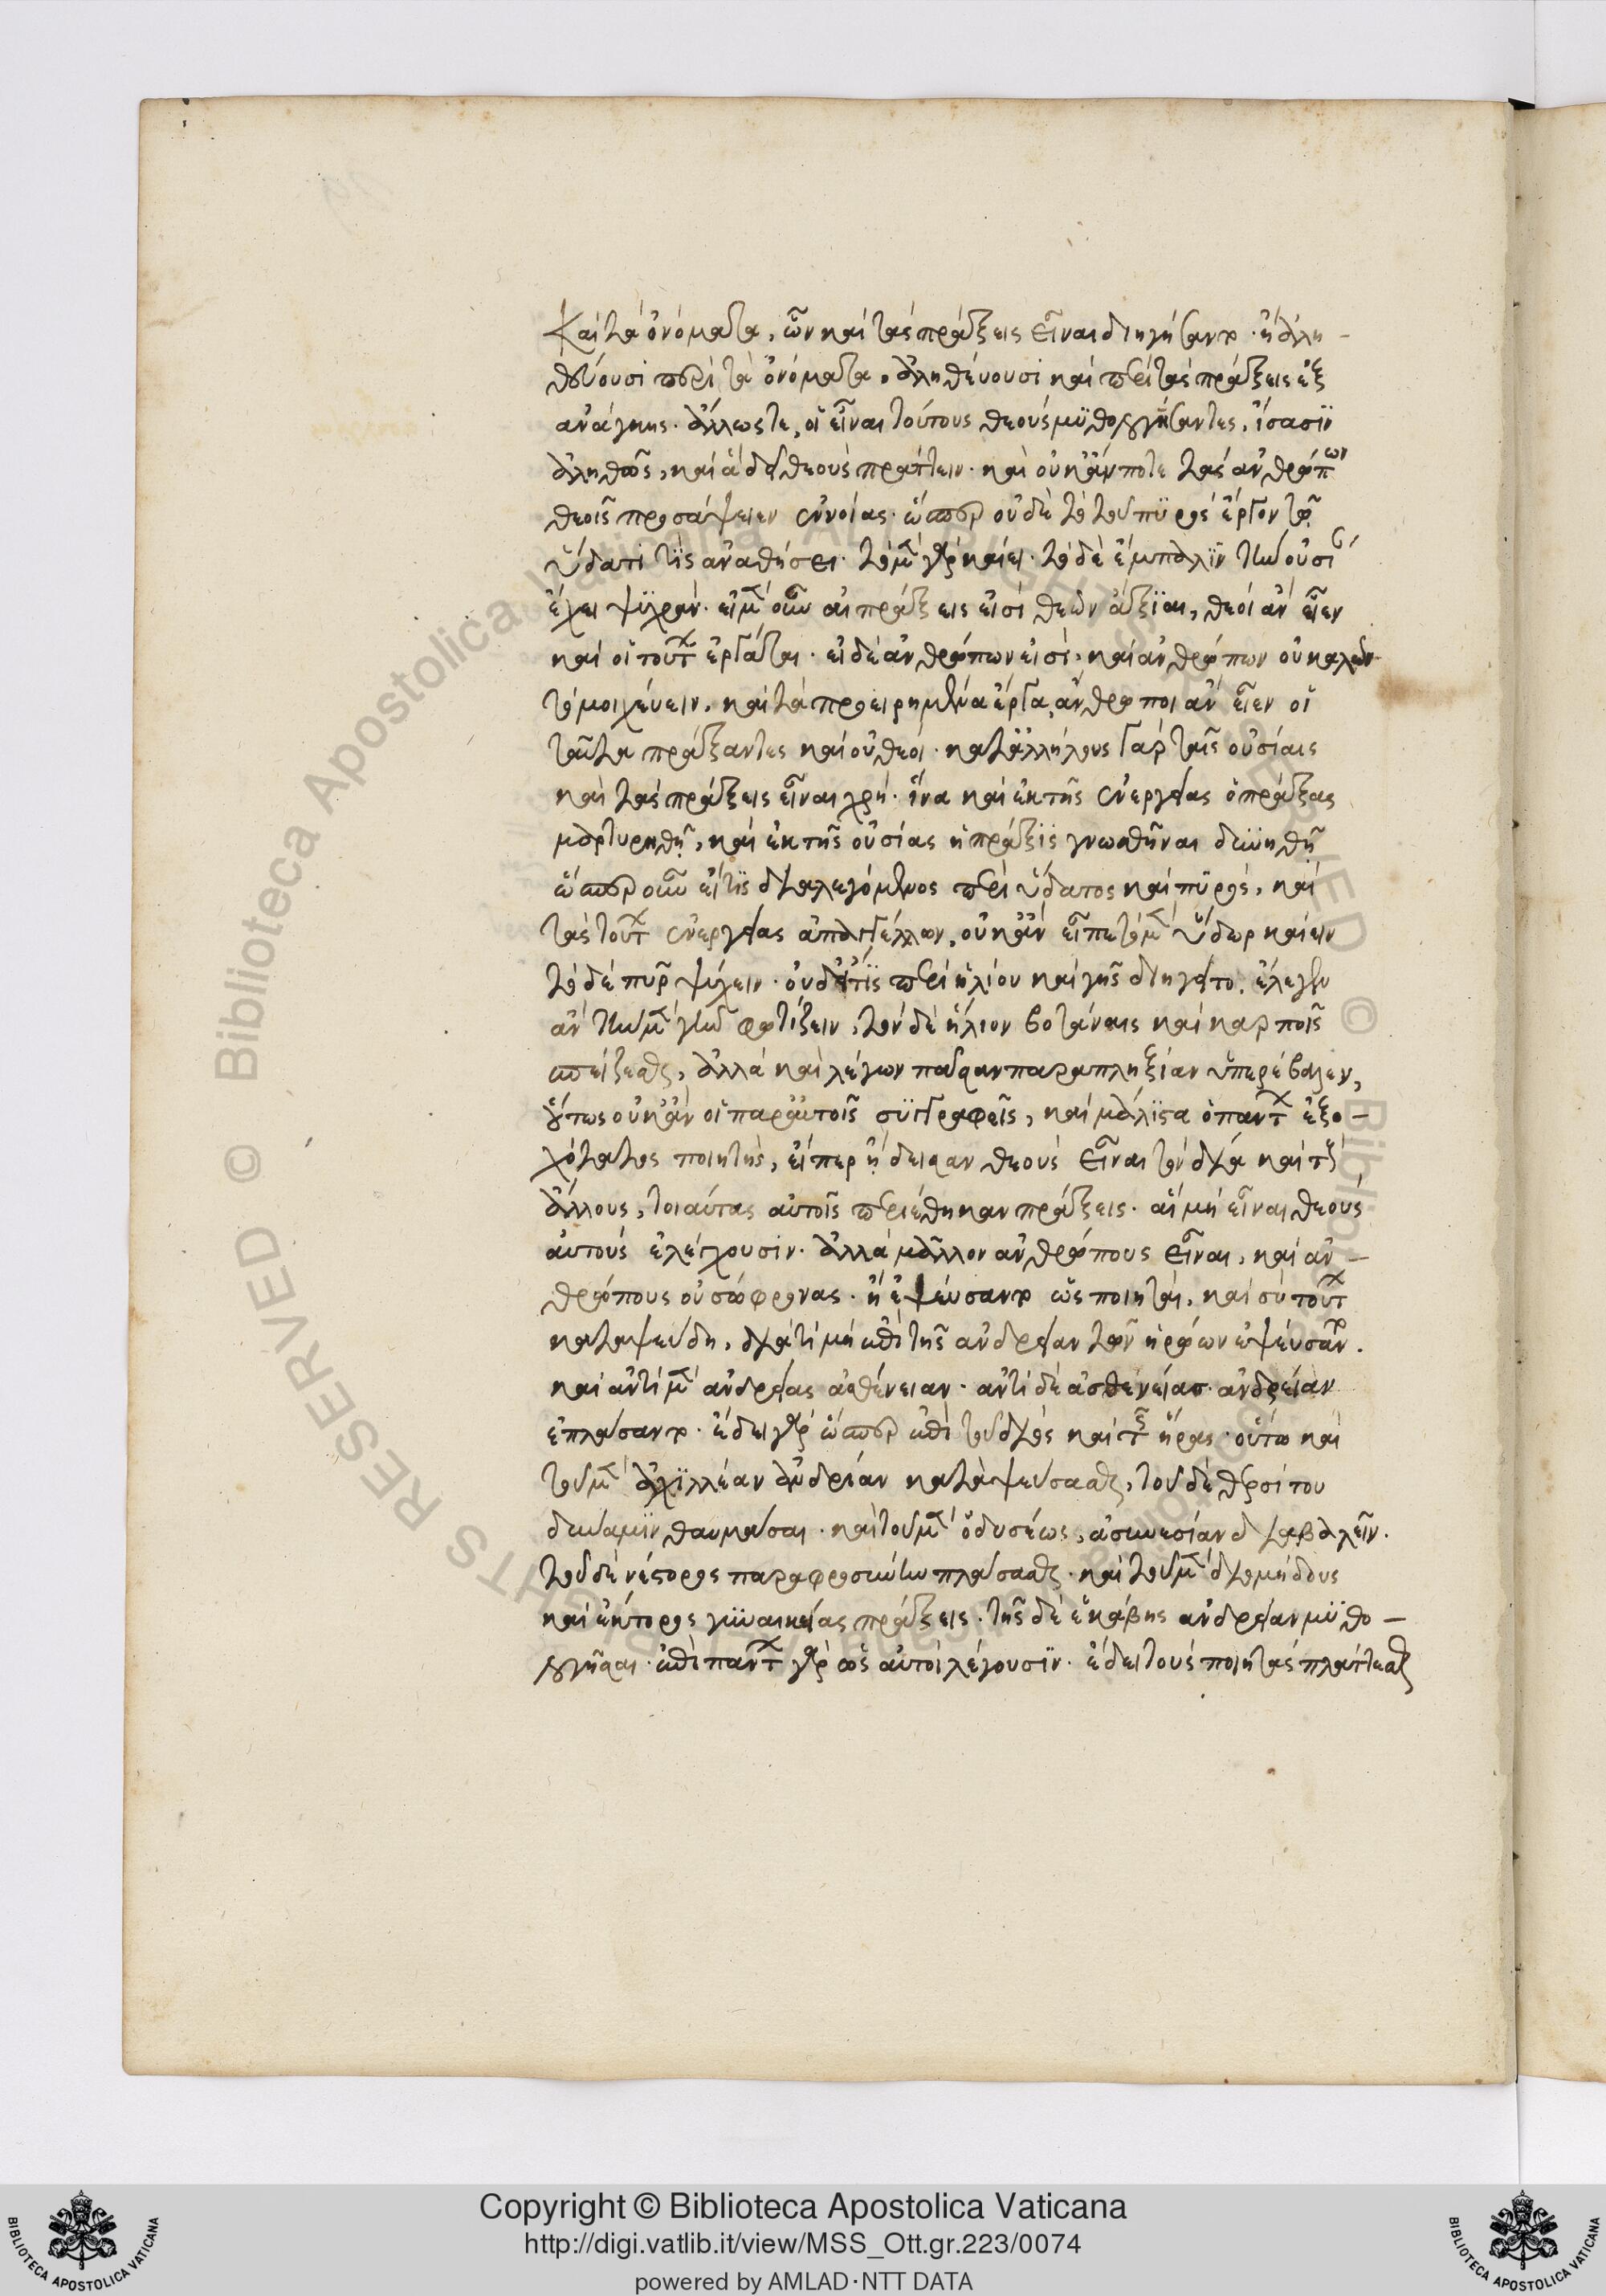 Καὶ τὰ ὀνόματα, ὧν καὶ τὰς πράξεις εἶναι διηγήσαντο. ἢ ἀλη-
θεύουσι περὶ τὰ ὀνόματα, ἀληθεύουσι καὶ περὶ τὰς πράξεις ἐξ
ἀνάγκης. ἄλλως τε, οἱ εἶναι τούτους θεοὺς μυθολογήσαντες, ἴσασϊν
ἀληθῶς, καὶ ἃ δεῖ θεοὺς πράττειν. καὶ οὐκ ἄν ποτε τὰς ἀνθρώπων
θεοῖς προσάψειεν ἐννοίας. ὥσπερ οὐδὲ τὸ τοῦ πϋρὸς ἔργον τῷ
ὕδατι τὶς ἀναθήσει. τὸ μὲν γὰρ καίει. τὸ δὲ ἔμπαλϊν τὴν οὐσί
ἔχει ψϋχράν. εἰ μὲν οὖν αἱ πράξεις εἰσὶ θεῶν ἄξϊαι, θεοὶ ἂν εἶεν
καὶ οἱ τούτων ἐργάται. εἰ δὲ ἀνθρώπων εἰσὶ, καὶ ἀνθρώπων οὐ καλῶν
τὸ μοιχεύειν, καὶ τὰ προειρημένα ἔργα, ἄνθρωποι ἂν εἶεν οἱ
ταῦτα πράξαντες καὶ οὐ θεοί. καταλλήλους γὰρ ταῖς οὐσίαις
καὶ τὰς πράξεις εἶναι χρή. ἵνα καὶ ἐκ τῆς ἐνεργείας ὁ πράξας
μαρτυρηθῇ, καὶ ἐκ τῆς οὐσίας ἡ πρᾶξϊς γνωσθῆναι δυνηθῇ
ὥσπερ οὖν εἴ τϊς διαλεγόμενος περὶ ὕδατος καὶ πϋρὸς, καὶ
τὰς τούτων ἐνεργείας ἀπαγγέλλων, οὐκ ἂν εἶπε τὸ μὲν ὕδωρ καίειν
τὸ δὲ πῦρ ψύχειν. οὐδὲ εἴ τϊς περὶ ἡλίου καὶ γῆς διηγεῖτο, ἔλεγεν
ἂν τὴν μὲν γῆν φωτίζειν, τὸν δὲ ἥλιον βοτάναις καὶ καρποῖς
σπείζεσθαι, ἀλλὰ καὶ λέγων πᾶσαν παραπληξίαν ὑπερέβαλεν,
οὕτως οὐκ ἂν οἱ παρ' αὐτοῖς συγγραφεῖς, καὶ μάλϊστα ὁ πάντων ἐξο-
χότατος ποιητὴς, εἴπερ ᾔδεισαν θεοὺς εἶναι τὸν δία καὶ τοὺς
ἄλλους, τοιαύτας αὐτοῖς περιέθηκαν πράξεις. αἳ μὴ εἶναι θεοὺς
αὐτοὺς ἐλέγχουσιν. ἀλλὰ μᾶλλον ἀνθρώπους εἶναι, καὶ ἀν-
θρώπους οὐ σώφρονας. ἢ ἐψεύσαντο ὡς ποιηταί, καὶ σὺ τούτων
καταψεύδῃ, διὰ τί μὴ ἐπὶ τῆς ἀνδρείαν τῶν ἡρώων ἐψεύσαντο.
καὶ ἀντὶ μὲν ἀνδρείας ἀσθένειαν. ἀντὶ δὲ ἀσθενείας ἀνδρείαν
ἐπλάσαντο. ἔδει γὰρ ὥσπερ ἐπὶ τοῦ διὸς καὶ τῆς ἥρας. οὕτω καὶ
τοῦ μὲν ἀχϊλλέαν ἀνδρίαν καταψεύσασθαι, τοῦ δὲ θερσίτου
δύναμϊν θαυμάσαι. καὶ τοῦ μὲν ὀδυσέως, ἀσυνεσίαν διαβαλεῖν.
τοῦ δὲ νέστορος παραφροσύνην πλάσασθαι. καὶ τοῦ μὲν διομήδους
καὶ ἕκτορος γυναικείας πράξεις. τῆς δὲ ἑκάβης ἀνδρείαν μϋθο-
λογῆσαι. ἐπὶ πάντων γὰρ ὡς αὐτοὶ λέγουσϊν. ἔδει τοὺς ποιητὰς πλάττεσθαι
Copyright © Biblioteca Apostolica Vaticana
http://digi.vatlib.it/view/MSS_Ott.gr.223/0074
powered by AMLAD·NTT DATA